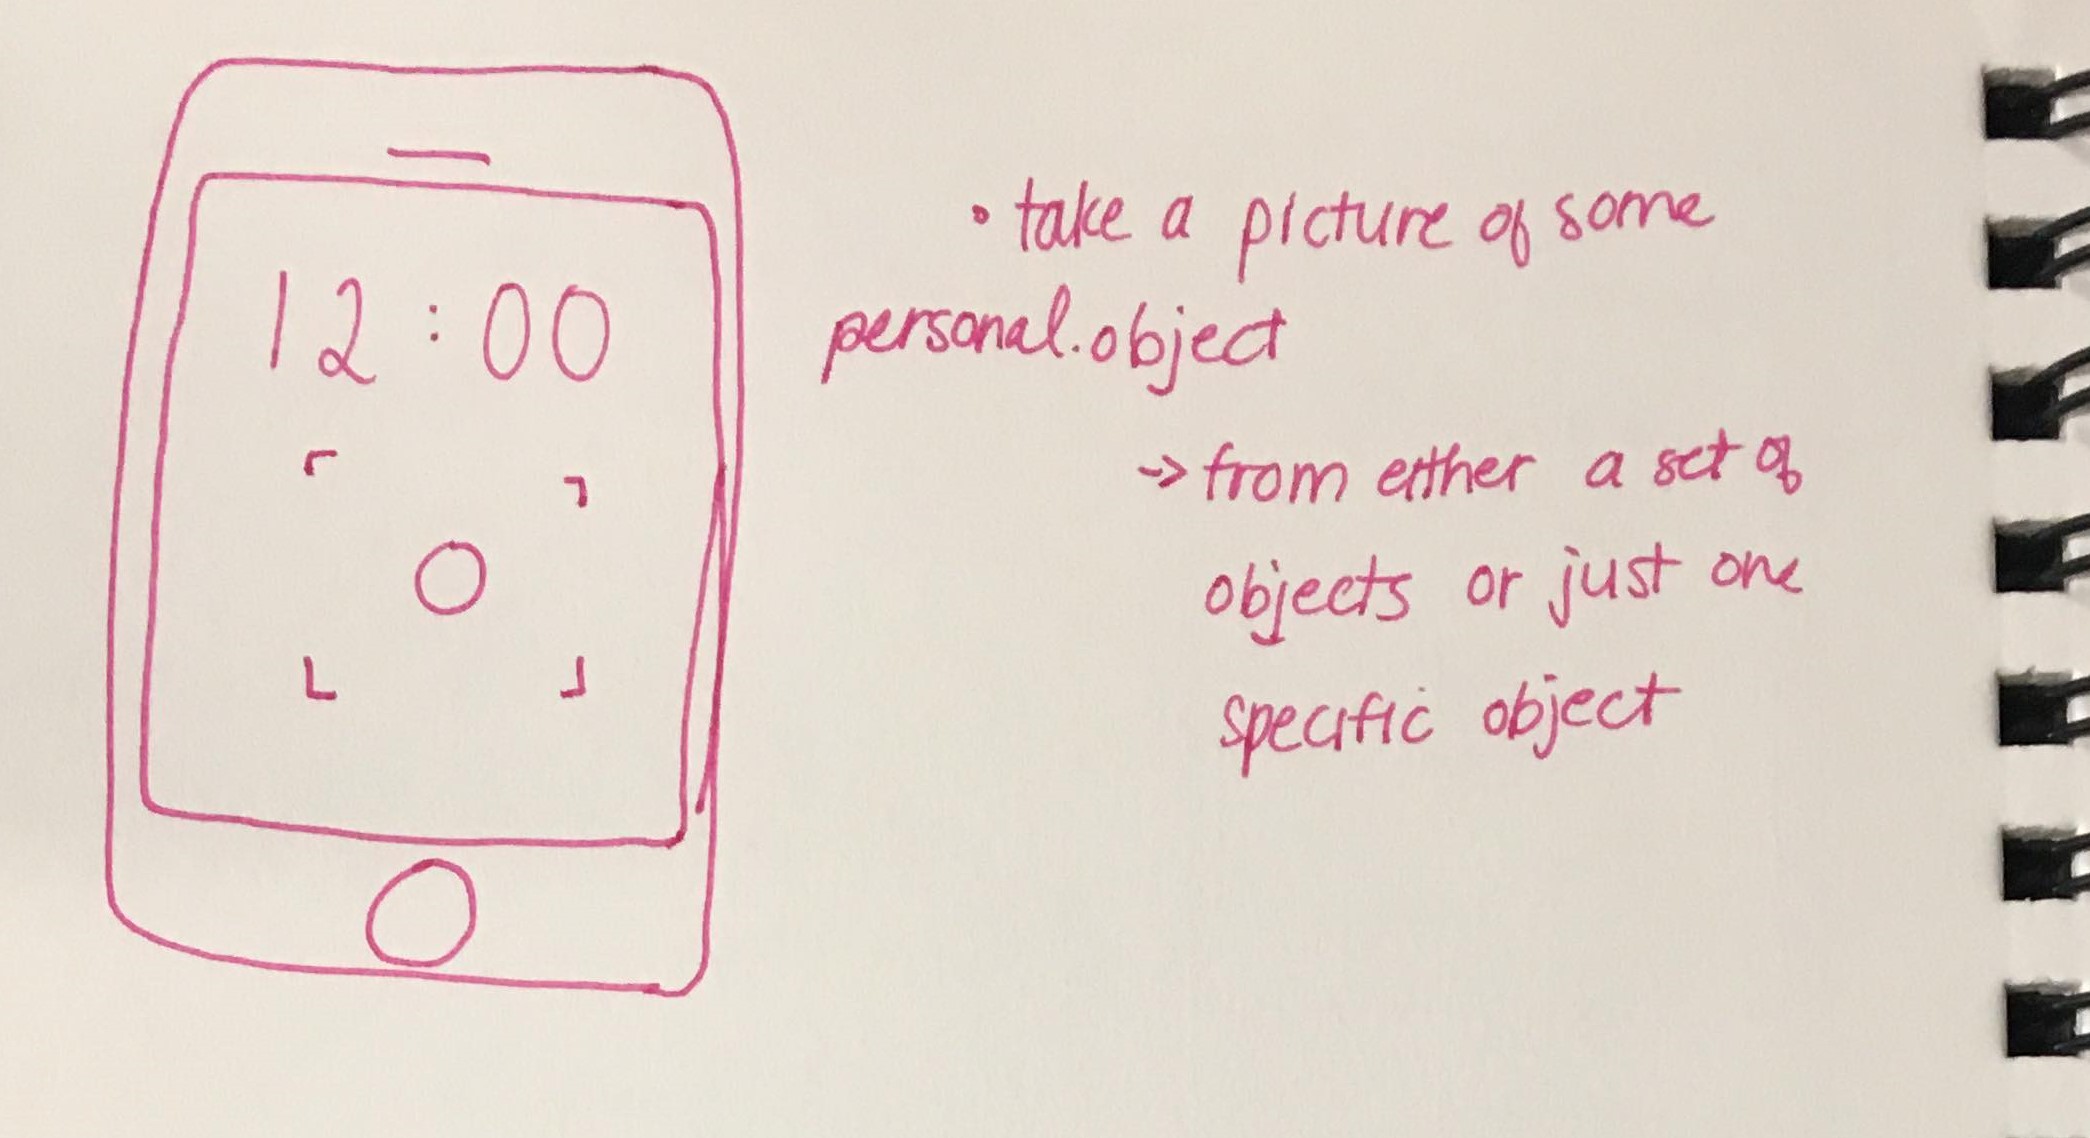 12:00
• take a picture of some
personal.object
-> from either a set of
objects or just one
specific object